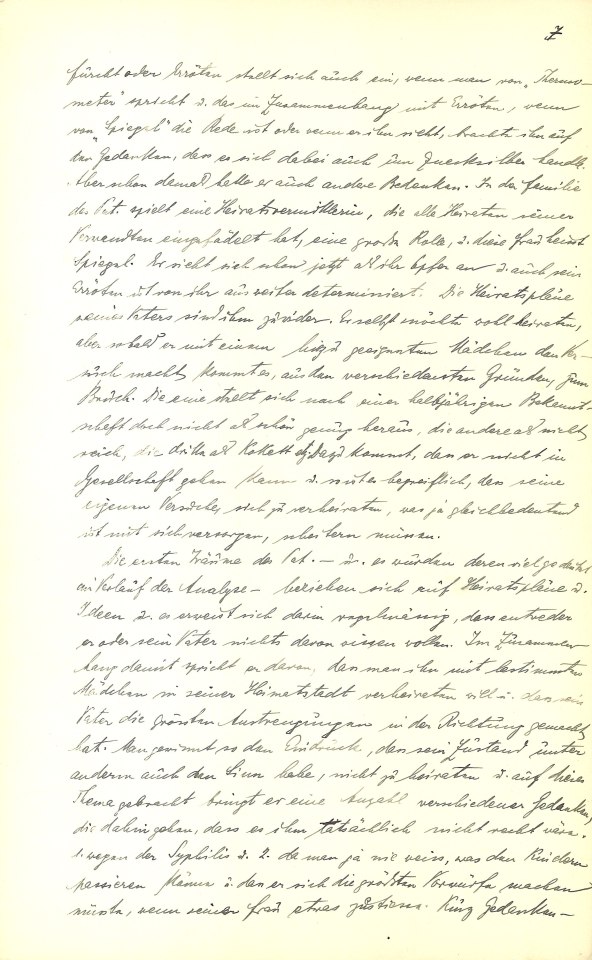 7
fürcht oder Erröten stellt sich auch ein, wenn man von „Thermo-
meter" spricht u. das im Zusammenhang mit Erröten, wenn
von „Spiegel" die Rede ist oder wenn er ihn sieht, brachte ihn auf
den Gedanken, dass es sich dabei auch um Quecksilber handle.
Aber schon damals hatte er auch andere Bedenken. In der Familie
des Pat. spielt eine Heiratsvermittlerin, die alle Heiraten seiner
Verwandten eingefädelt hat, eine große Rolle, u. diese Frau heisst
Spiegel. Er sieht sich schon jetzt als ihr Opfer an u. auch sein
Erröten ist von ihr aus weiter determiniert. Die Heiratspläne
seines Vaters sind ihm zuwider. Er selbst möchte wohl heiraten,
aber sobald er mit einem hiezu geeigneten Mädchen den Ver-
such macht, kommt es, aus den verschiedensten Gründen, zum
Bruch. Die eine stellt sich nach einer halbjährigen Bekannt-
schaft doch nicht als schön genug heraus, die andere als nicht
reich, die dritte als kokett etz. Dazu kommt, dass er nicht in
Gesellschaft gehen kann u. mithin begreiflich, dass seine
eigenen Versuche, sich zu verheiraten, was ja gleichbedeutend
ist mit sich versorgen, scheitern müssen.
Die ersten Träume des Pat. – u. es wurden deren viel gedeutet
im Verlauf der Analyse – beziehen sich auf Heiratspläne u.
Ideen u. es erweist sich darin regelmässig, dass entweder
er oder sein Vater nichts davon wissen wollen. Im Zusammen-
hang damit spricht er davon, dass man ihn mit bestimmten
Mädchen in seiner Heimatstadt verheiraten will u. dass sein
Vater die grössten Anstrengungen in der Richtung gemacht
hat. Man gewinnt so den Eindruck, dass sein Zustand unter
anderem auch den Sinn habe, nicht zu heiraten u. auf dieses
Thema gebracht bringt er eine Anzahl verschiedener Gedanken,
die dahin gehen, dass es ihm tatsächlich nicht recht wäre.
1. wegen der Syphilis u. 2. da man ja nie weiss, was den Kindern
passieren könne u. dass er sich die größten Vorwürfe machen
müsste, wenn seiner Frau etwas zustiesse. Kurz Gedanken-